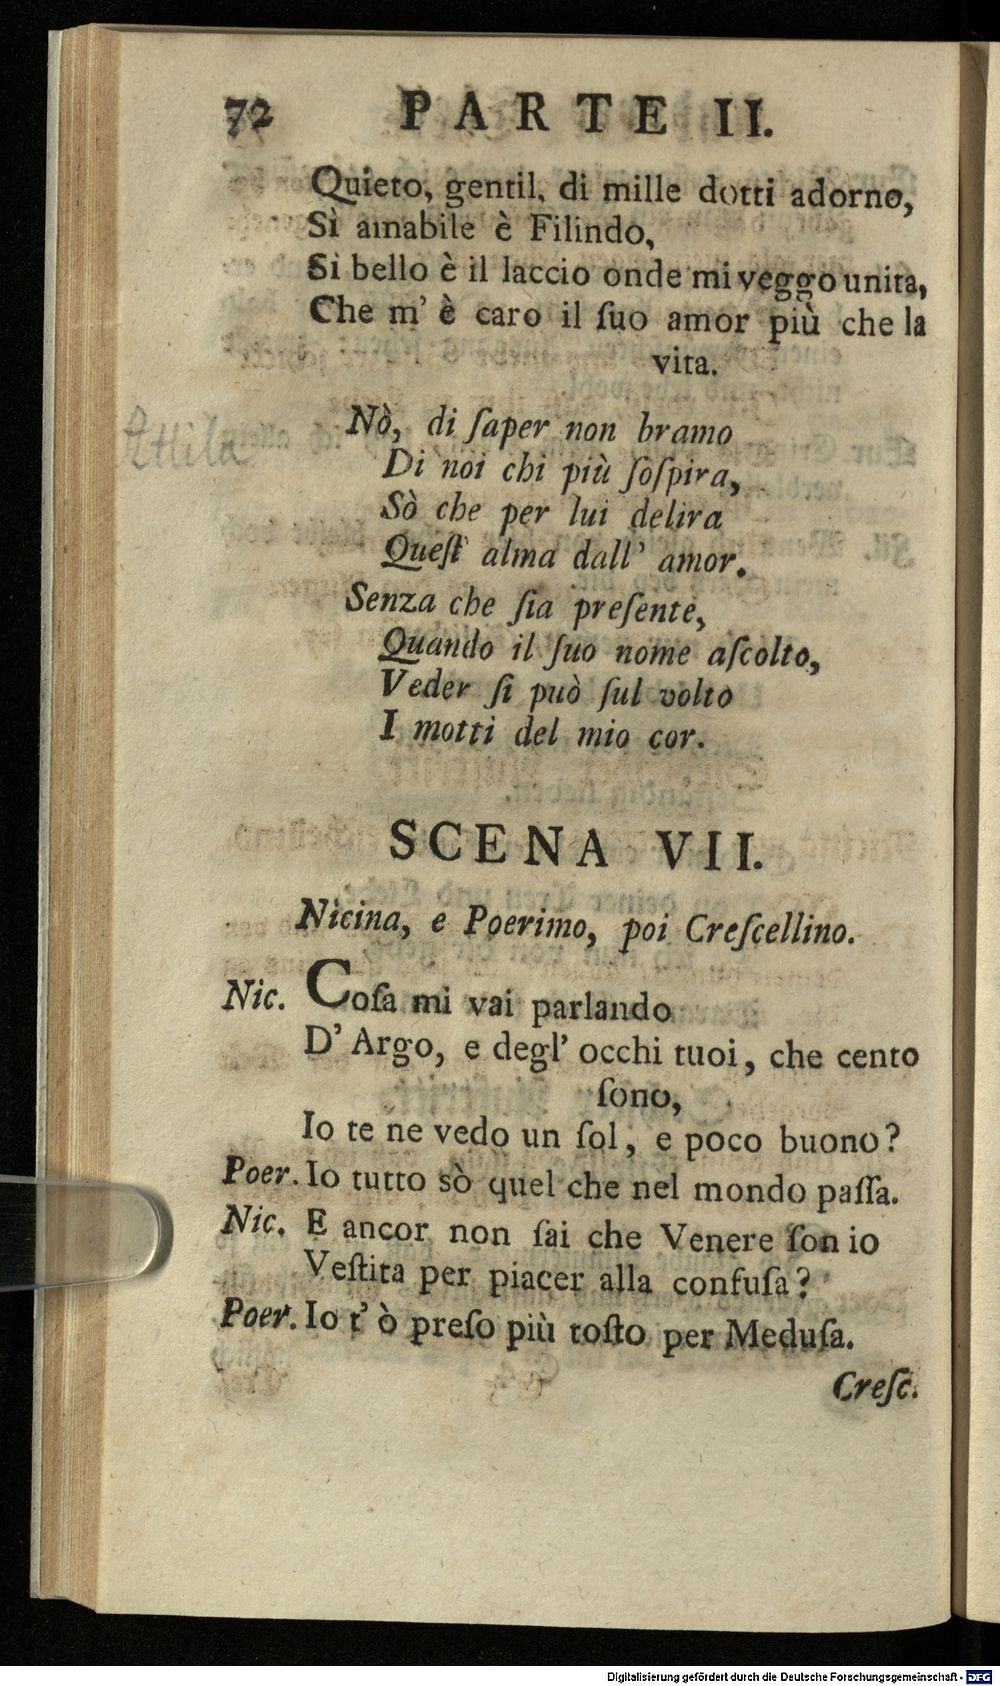 72 PARTE II.
Quieto, gentil, di mille dotti adorno,
Sì amabile è Filindo,
Si bello è il laccio onde mi veggo unita,
Che m' è caro il ſuo amor più che la
vita.
Attila
Nò, di ſaper non bramo
Di noi chi più ſoſpira,
Sò che per lui delira
Queſt' alma dall' amor.
Senza che ſia preſente,
Quando il ſuo nome aſcolto,
Veder ſi può ſul volto
I motti del mio cor.
SCENA VII.
Nicina, e Poerimo, poi Creſcellino.
Nic. Coſa mi vai parlando
D' Argo, e degl' occhi tuoi, che cento
ſono,
Io te ne vedo un ſol, e poco buono?
Poer. Io tutto sò quel che nel mondo paſſa.
Nic. E ancor non ſai che Venere ſon io
Veſtita per piacer alla confuſa?
Poer. Io t' ò preſo più toſto per Meduſa.
Creſc.
Digitalisierung gefördert durch die Deutsche Forschungsgemeinschaft - DFG